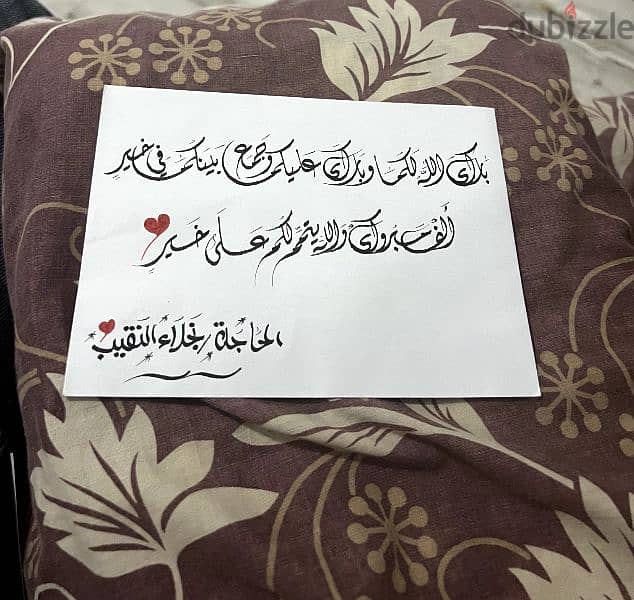 dubizzle
بارك الله لكما وبارك عليكما وجمع بينكما في خير
ألف مبروك والله يتمم لكم على خير
الحاجة / نجلاء النقيب